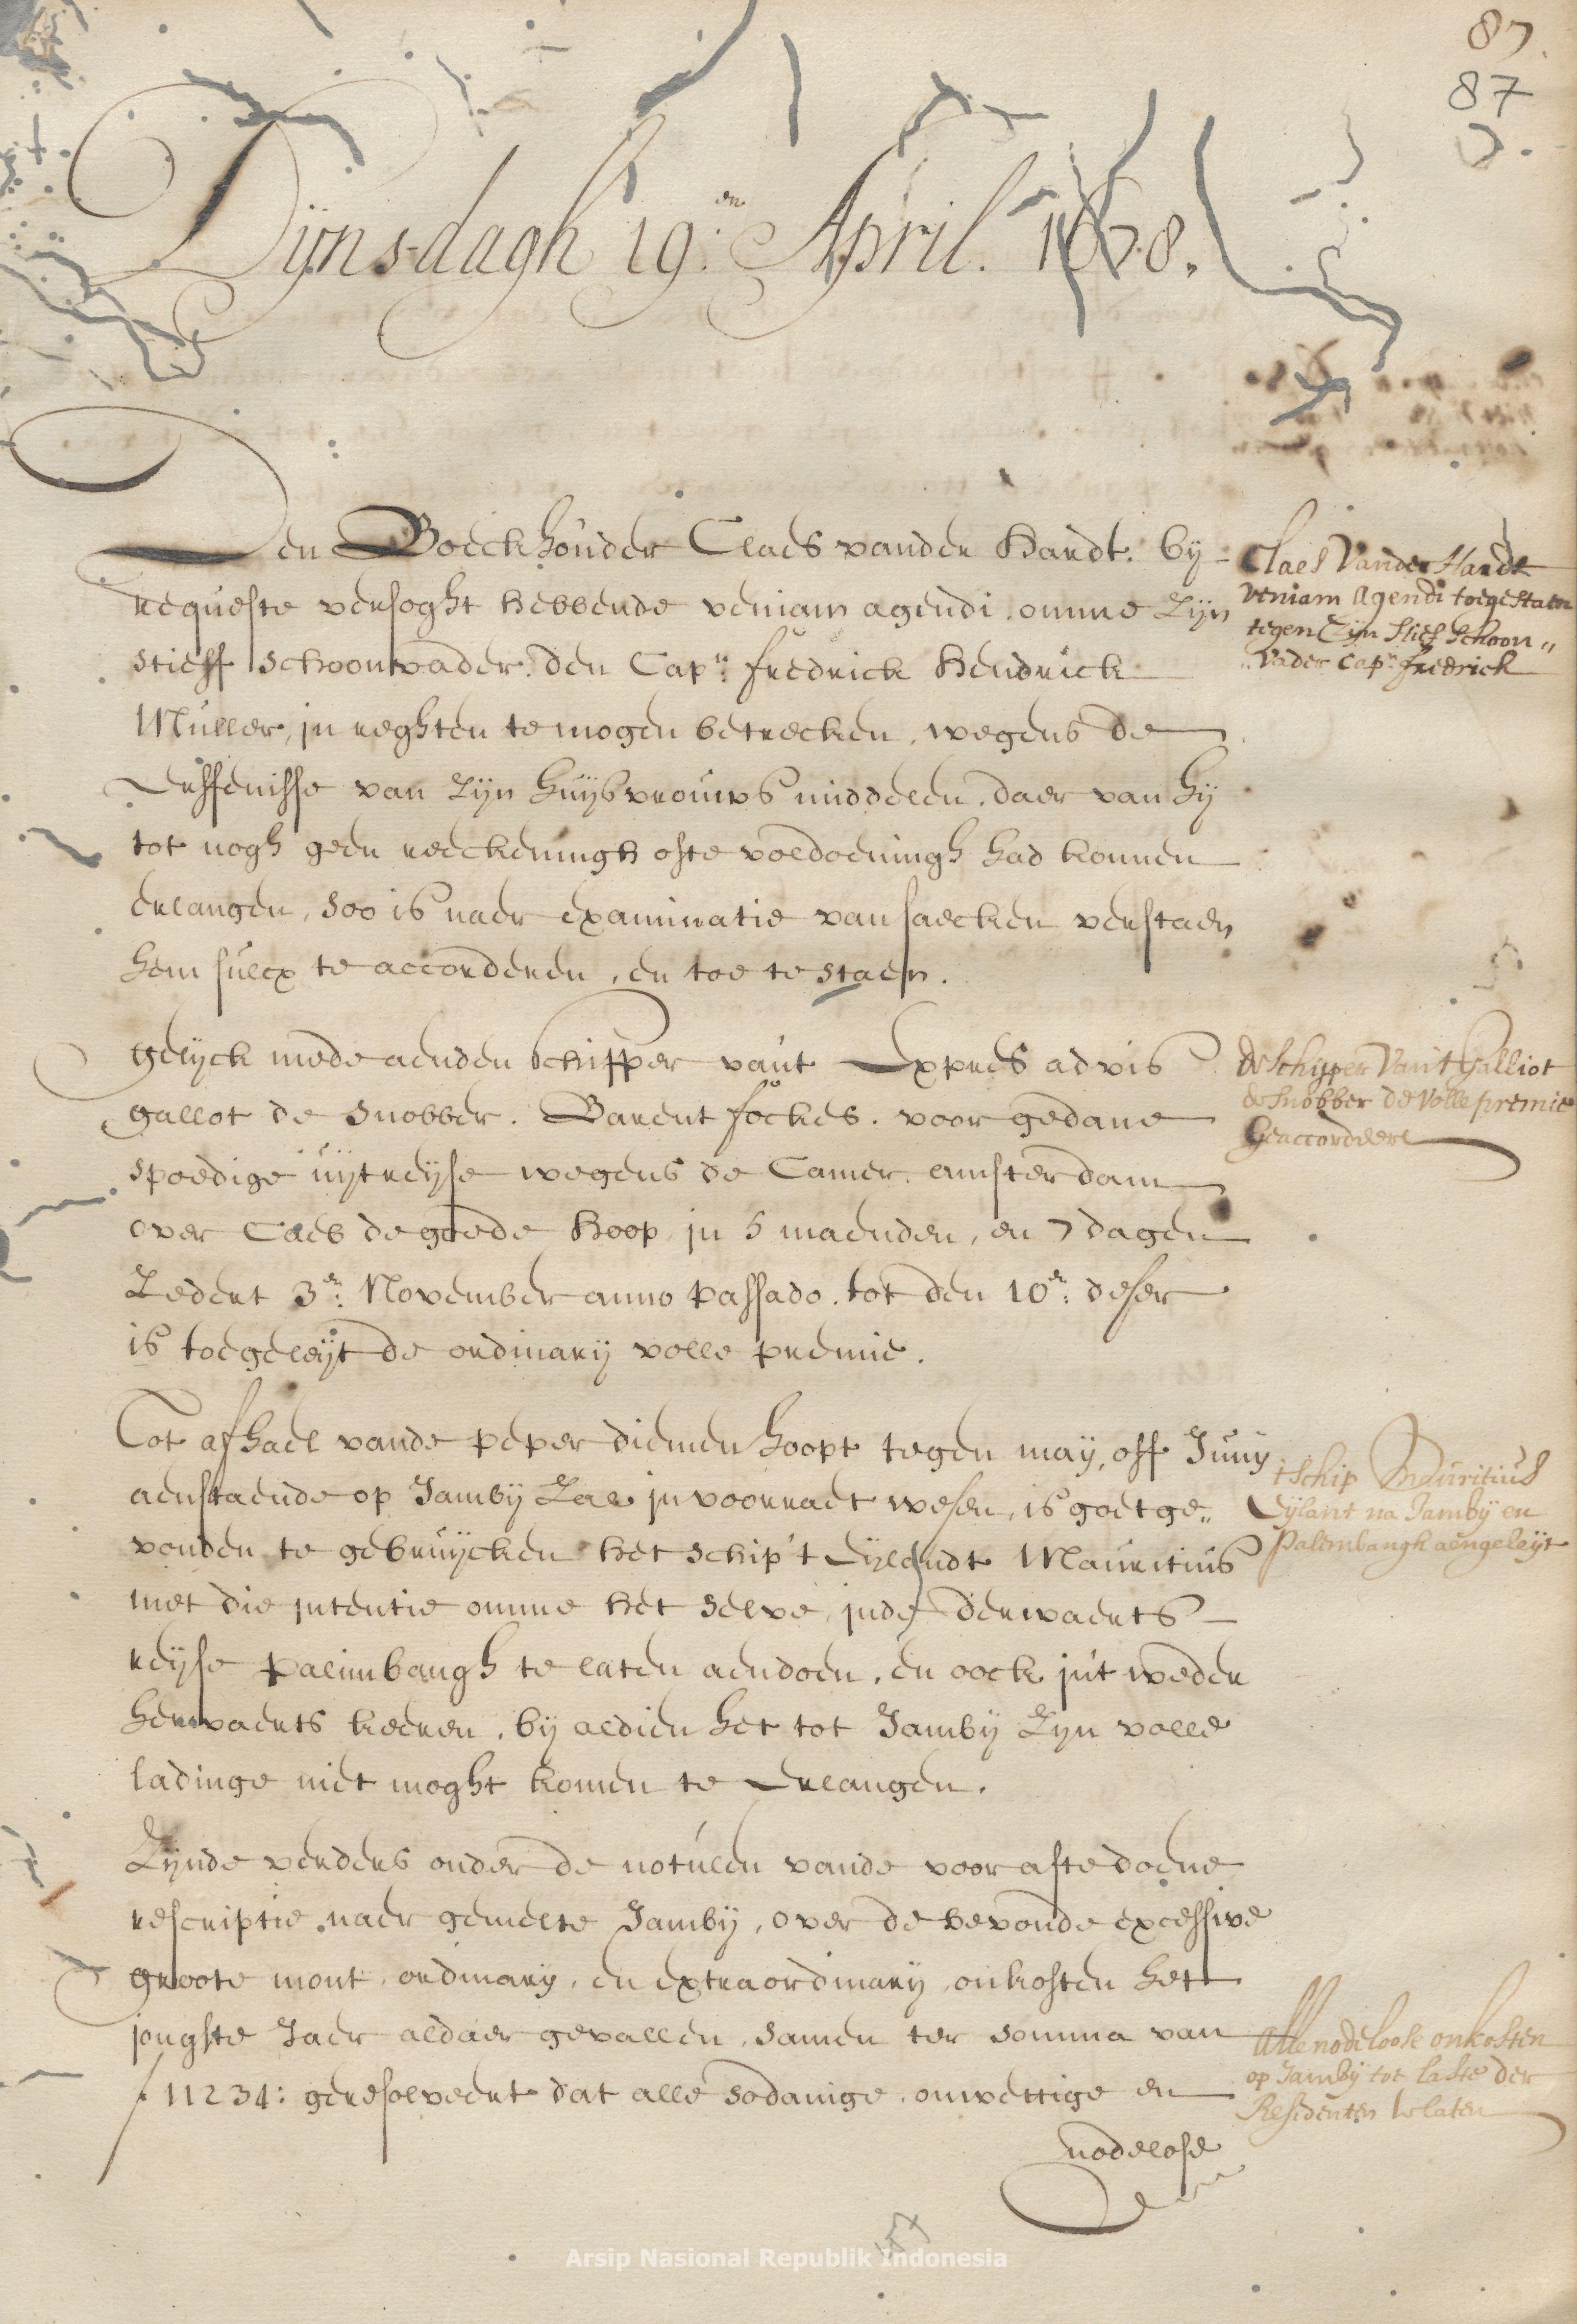 87.
87
Dijnsdagh 19:en April. 1678.
Den Boeckhouder Claes vander Hardt. bij
requeste versoght hebbende veniam agendi, omme zijn
stieff schoonvader. den Capn: fredrick Hendrick
Muller, in reghten te mogen betrecken, wegens de
Erffenisse van zijn huijsvrouws middelen. daer van hij
tot nogh geen reeckeningh ofte voldoeningh had konnen
erlangen, soo is naer examinatie van saecken verstaen
hem sulcx te accorderen, en toe te staen.
Claes Vander Hardt
Veniam Agendi toegestaen
tegen Zijn Stief Schoon„
„Vader Capn fredrick
gelijck mede aenden schipper van't Expres advis
galliot de Snobber. Barent fockes. voor gedane
spoedige uijtreijse wegens de Camer. amsterdam
over Caeb de goede Hoop in 5 maenden, en 7 dagen
Zedert 3en: November anno passado. tot den 10en: deser
is toegeleijt de ordinarij volle premie.
de Schipper Van't Galliot
de Snobber de Volle premie
Geaccordeert
Tot afhael vande peper diemen hoopt tegen maij, off Junij
aenstaende op Jambij Zal in voorraet wesen, is goet ge„
vonden te gebruijcken het schip 't Eijlandt Mauritius
met die intentie omme het selve inde derwaerts
reijse palimbangh te laten aendoen, en oock in't weder
herwaerts keeren, bij aldien het tot Jambij Zijn volle
ladinge niet moght komen te Erlangen.
t Schip Mauritius
Eijlant na Jambij en
Palembangh aengeleijt
Zijnde verders onder de notulen vande voor afte doene
rescriptie naer gemelte Jambij, over de bevonde excessive
groote mont, ordinarij, en extraordinarij onkosten het
jongste Jaer aldaer gevallen, samen ter somma van
f 11234: geresolveert dat alle sodanige. onwettige en
nodelose
Alle nodeloose onkosten
op Jambij tot laste der
Residenten te laten
Arsip Nasional Republik Indonesia